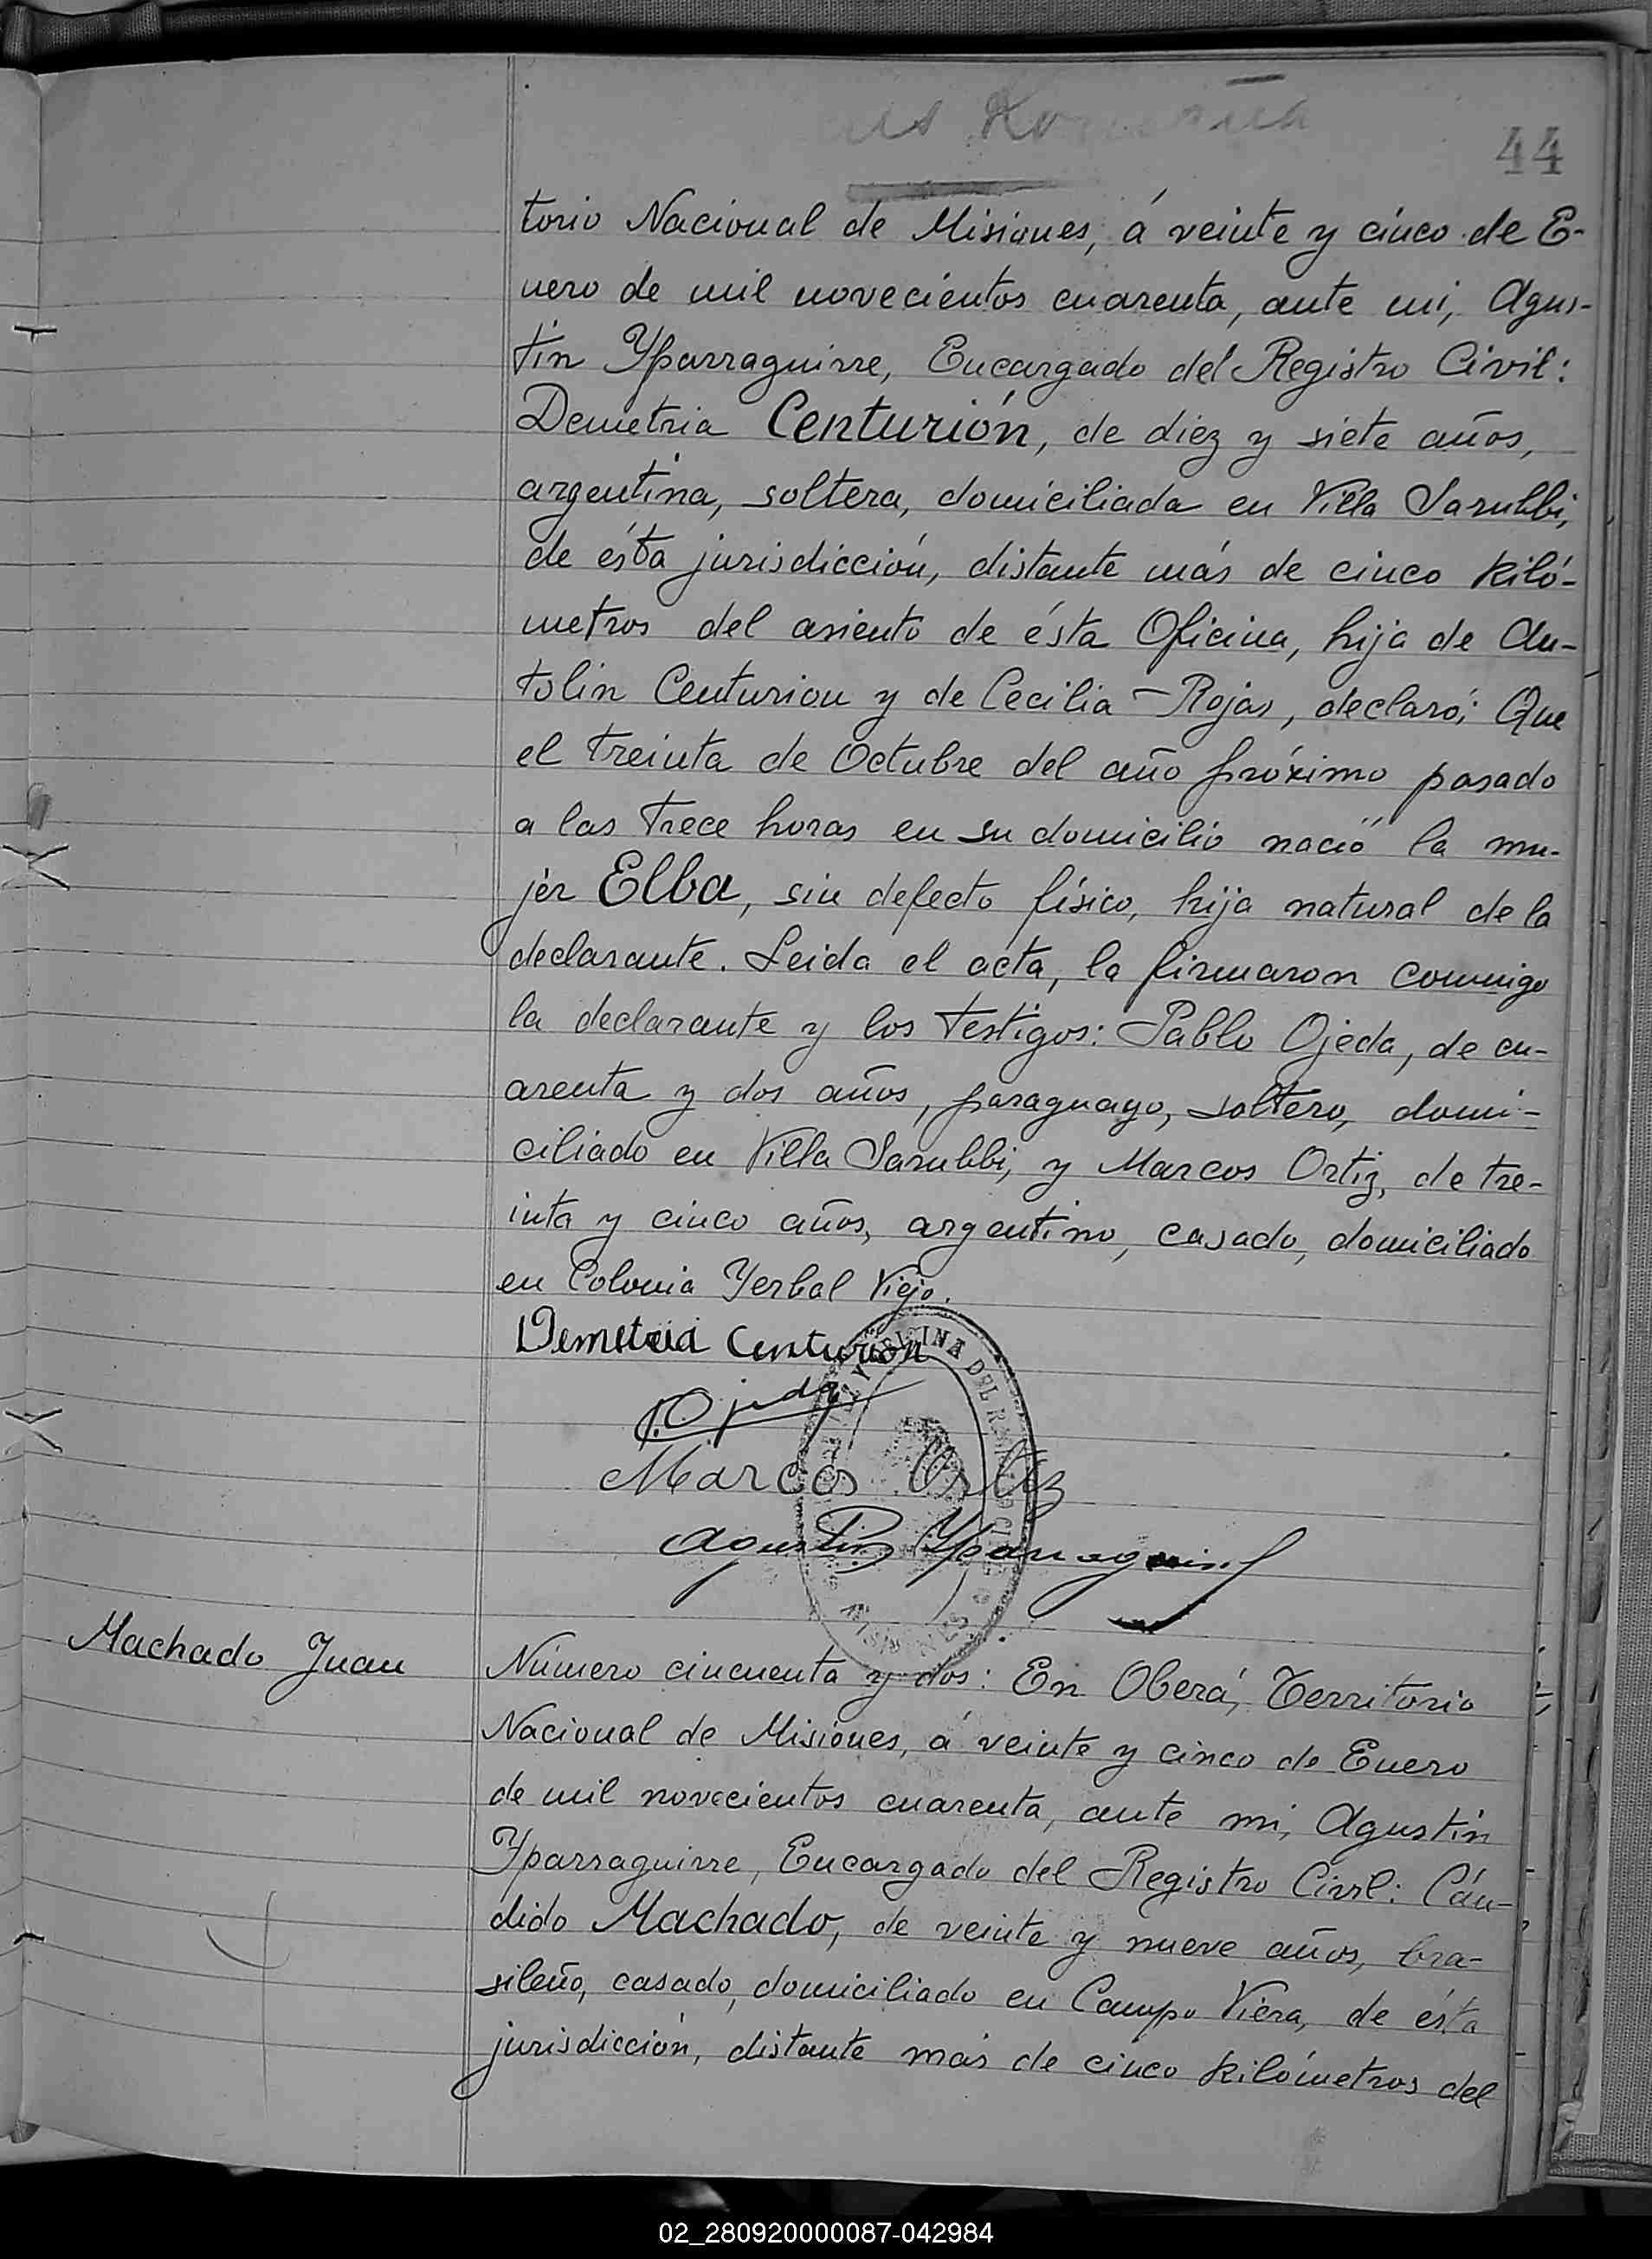 44
torio Nacional de Misiones, á veinte y cinco de E-
nero de mil novecientos cuarenta, ante mi, Agus-
tín Yparraguirre, Encargado del Registro Civil:
Demetria Centurión, de diez y siete años,
argentina, soltera, domiciliada en Villa Sarubbi,
de ésta jurisdicción, distante más de cinco kiló-
metros del asiento de ésta Oficina, hija de An-
tolin Centurion y de Cecilia Rojas, declaró: Que
el treinta de Octubre del año próximo pasado
a las trece horas en su domicilio nació la mu-
jer Elba, sin defecto físico, hija natural de la
declarante. Leida el acta, la firmaron conmigo
la declarante y los testigos: Pablo Ojeda, de cu-
arenta y dos años, paraguayo, soltero, domi-
ciliado en Villa Sarubbi, y Marcos Ortiz, de tre-
inta y cinco años, argentino, casado, domiciliado
en Colonia Yerbal Viejo.
Demetria Centurión
P. Ojeda
Marcos Ortiz
Agustin Yparraguirre
MISIONES
Machado Juan
Número cincuenta y dos: En Oberá, Territorio
Nacional de Misiones, á veinte y cinco de Enero
de mil novecientos cuarenta, ante mi, Agustín
Yparraguirre, Encargado del Registro Civil: Cán-
dido Machado, de veinte y nueve años, bra-
sileño, casado, domiciliado en Campo Viera, de ésta
jurisdicción, distante más de cinco kilómetros del
02_280920000087-042984